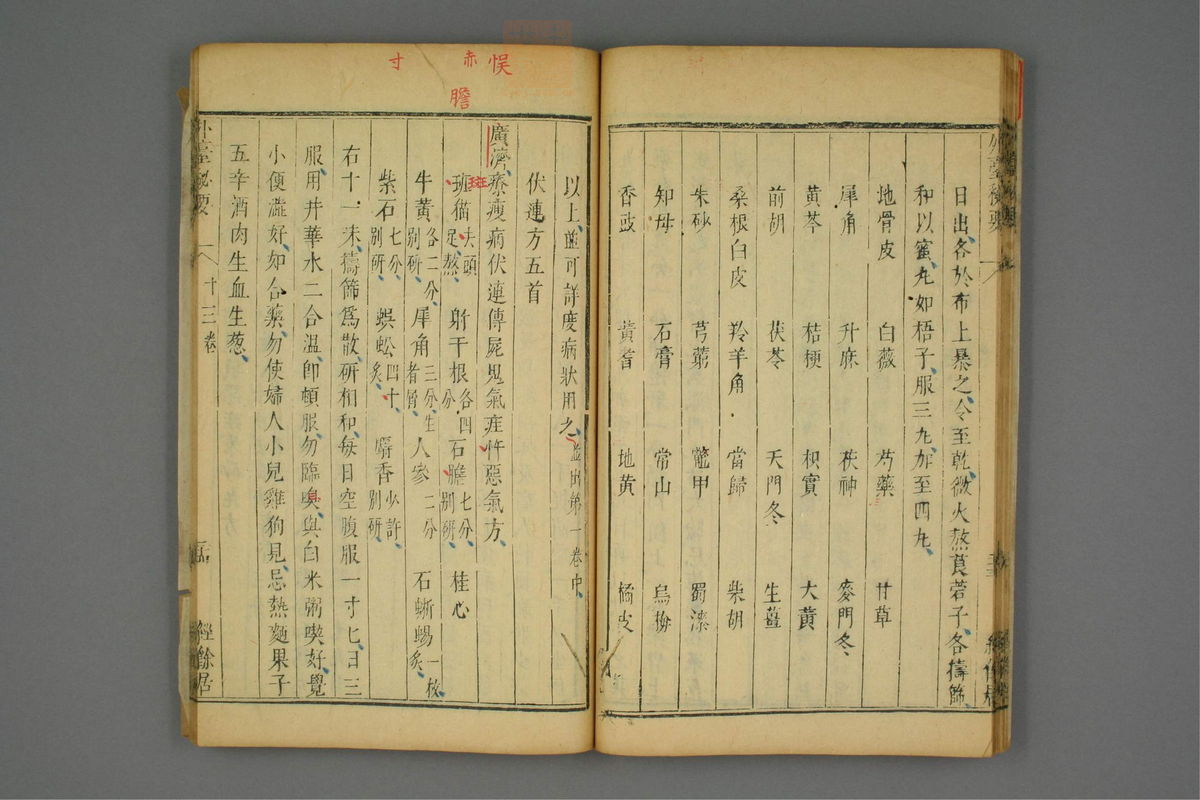 日出各於布上暴之令至乾微火熬莨菪子各擣篩
和以蜜丸如梧子服三丸加至四丸
地骨皮 白薇 芍藥 甘草
犀角 升麻 茯神 麥門冬
黃芩 桔梗 枳實 大黃
前胡 茯苓 天門冬 生薑
桑根白皮 羚羊角 當歸 柴胡
朱砂 芎藭 鼈甲 蜀漆
知母 石膏 常山 烏梅
香豉 黃耆 地黃 橘皮
以上並可詳度病狀用之 並出第一卷中
伏連方五首
廣濟療瘦病伏連傳屍鬼氣疰忤惡氣方
斑猫 去頭足熬 射干根 各四分 石膽 七分別研 桂心
牛黃 各二分別研 犀角 三分生者屑 人參 二分 石蜥蜴 一枚炙
紫石 七分別研 蜈蚣 四寸炙 麝香 少許別研
右十一味擣篩爲散研相和每日空腹服一寸匕日三
服用井華水二合溫卽頓服勿臨嗅與白米粥喫好覺
小便澁好如合藥勿使婦人小兒雞狗見忌熱麵果子
五辛酒肉生血生葱
外臺秘要 十三卷 經餘居
悮
赤
膽
寸
斑